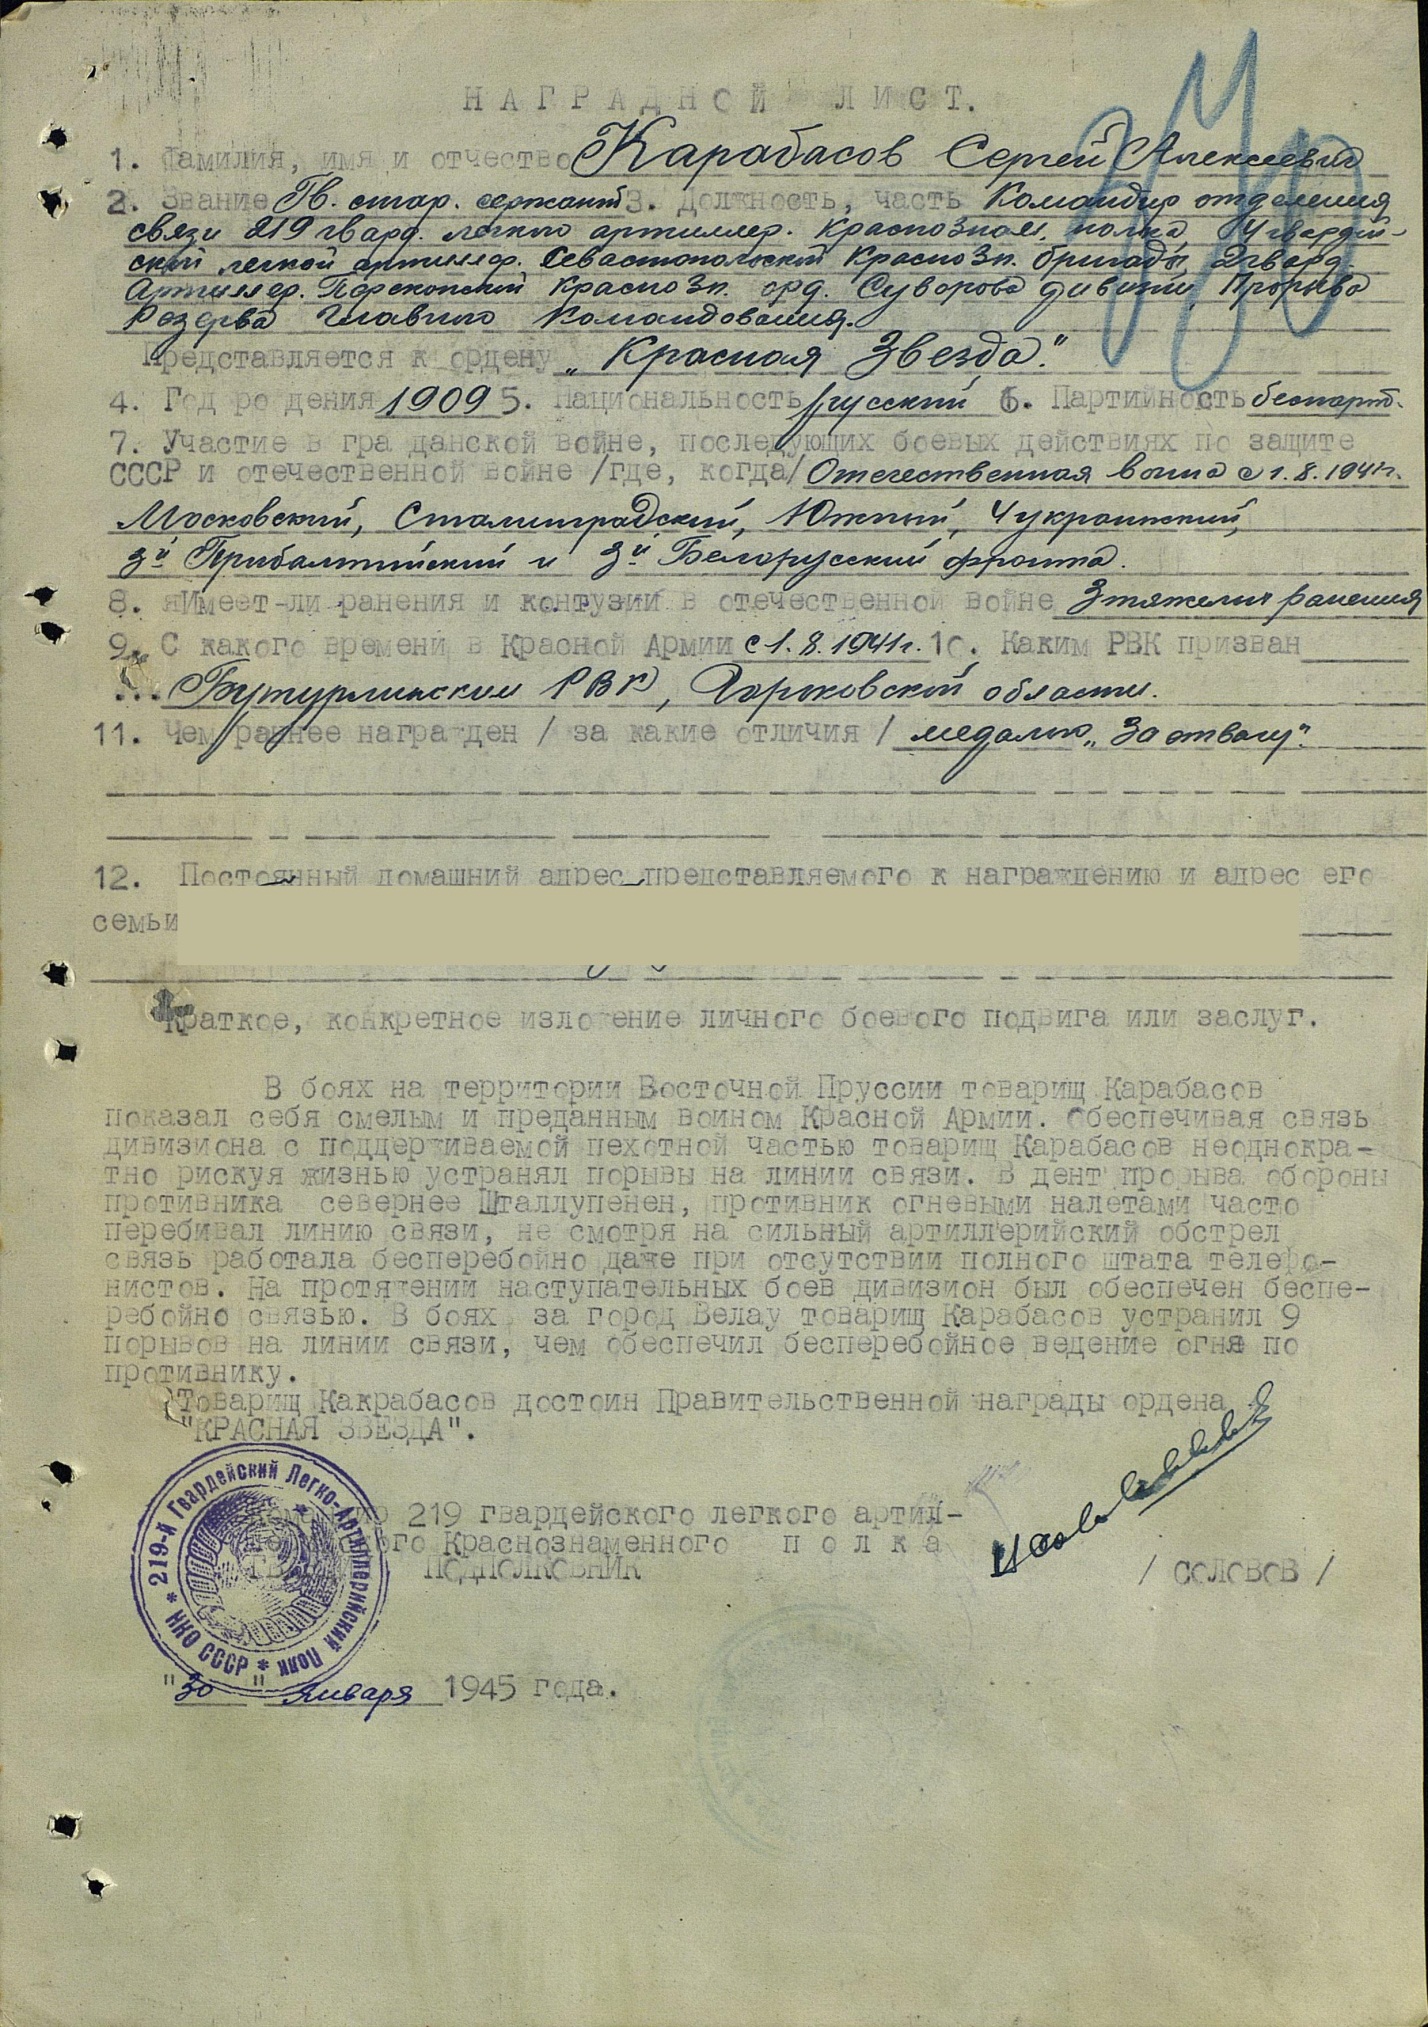 НАГРАДНОЙ ЛИСТ.
1. Фамилия, имя и отчество Карабасов Сергей Алексеевич
2. Звание Гв. стар. сержант 3. Должность, часть Командир отделения
связи 219 гвард. легкого артиллер. Краснознам. полка, 4 гвардей-
ской легкой артиллер. Севастопольской КрасноЗн. бригады, 2 гвард.
Артиллер. Перекопской КрасноЗн. орд. Суворова дивизии Прорыва
Резерва Главного Командования.
Представляется к ордену „Красная Звезда".
4. Год ро дения 1909 5. Национальность русский 6. Партийность беспарт.
7. Участие в гра данской войне, последующих боевых действиях по защите
СССР и отечественной войне /где, когда/ Отечественная война с 1.8.1941г.
Московский, Сталинградский, Южный, 4 украинский,
3й Прибалтийский и 3й Белорусский фронта.
8. яИмеет-ли ранения и контузии в отечественной войне 3 тяжелых ранения
9. С какого времени в Красной Армии с 1.8.1941г. 10. Каким РВК призван
... Бутурлинским РВК, Горьковской области.
11. Чем раннее награжден / за какие отличия / медалью „За отвагу".
12. Постоянный домашний адрес представляемого к награждению и адрес его
семьи
Краткое, конкретное изложение личного боевого подвига или заслуг.
В боях на территории Восточной Пруссии товарищ Карабасов
показал себя смелым и преданным воином Красной Армии. Обеспечивая связь
дивизиона с поддерживаемой пехотной частью товарищ Карабасов неоднокра-
тно рискуя жизнью устранял порывы на линии связи. В дент прорыва обороны
противника севернее Шталлупенен, противник огневыми налетами часто
перебивал линию связи, не смотря на сильный артиллерийский обстрел
связь работала бесперебойно даже при отсутствии полного штата телефо-
нистов. На протяжении наступательных боев дивизион был обеспечен беспе-
ребойно связью. В боях за город Велау товарищ Карабасов устранил 9
порывов на линии связи, чем обеспечил бесперебойное ведение огня по
противнику.
Товарищ Какрабасов достоин Правительственной награды ордена
"КРАСНАЯ ЗВЕЗДА".
Командир 219 гвардейского легкого артил-
лерийского Краснознаменного полка
гвардии ПОДПОЛКОВНИК / СОЛОВОВ /
219-й Гвардейский Легко-Артиллерийский Полк * НКО СССР *
"30" января 1945 года.